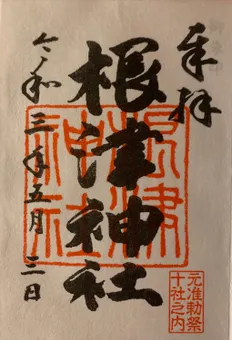 奉拝
根津神社
令和三年五月三日
根津神社
元准勅祭
十社之内